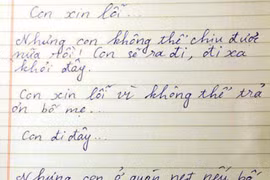 Con xin lỗi...
Nhưng con không thể chịu được
nữa rồi! Con sẽ ra đi, đi xa
khỏi đây.
Con xin lỗi vì không thể trả
ơn bố mẹ.
Con đi đây...
Nhưng con ở quán net nếu bố